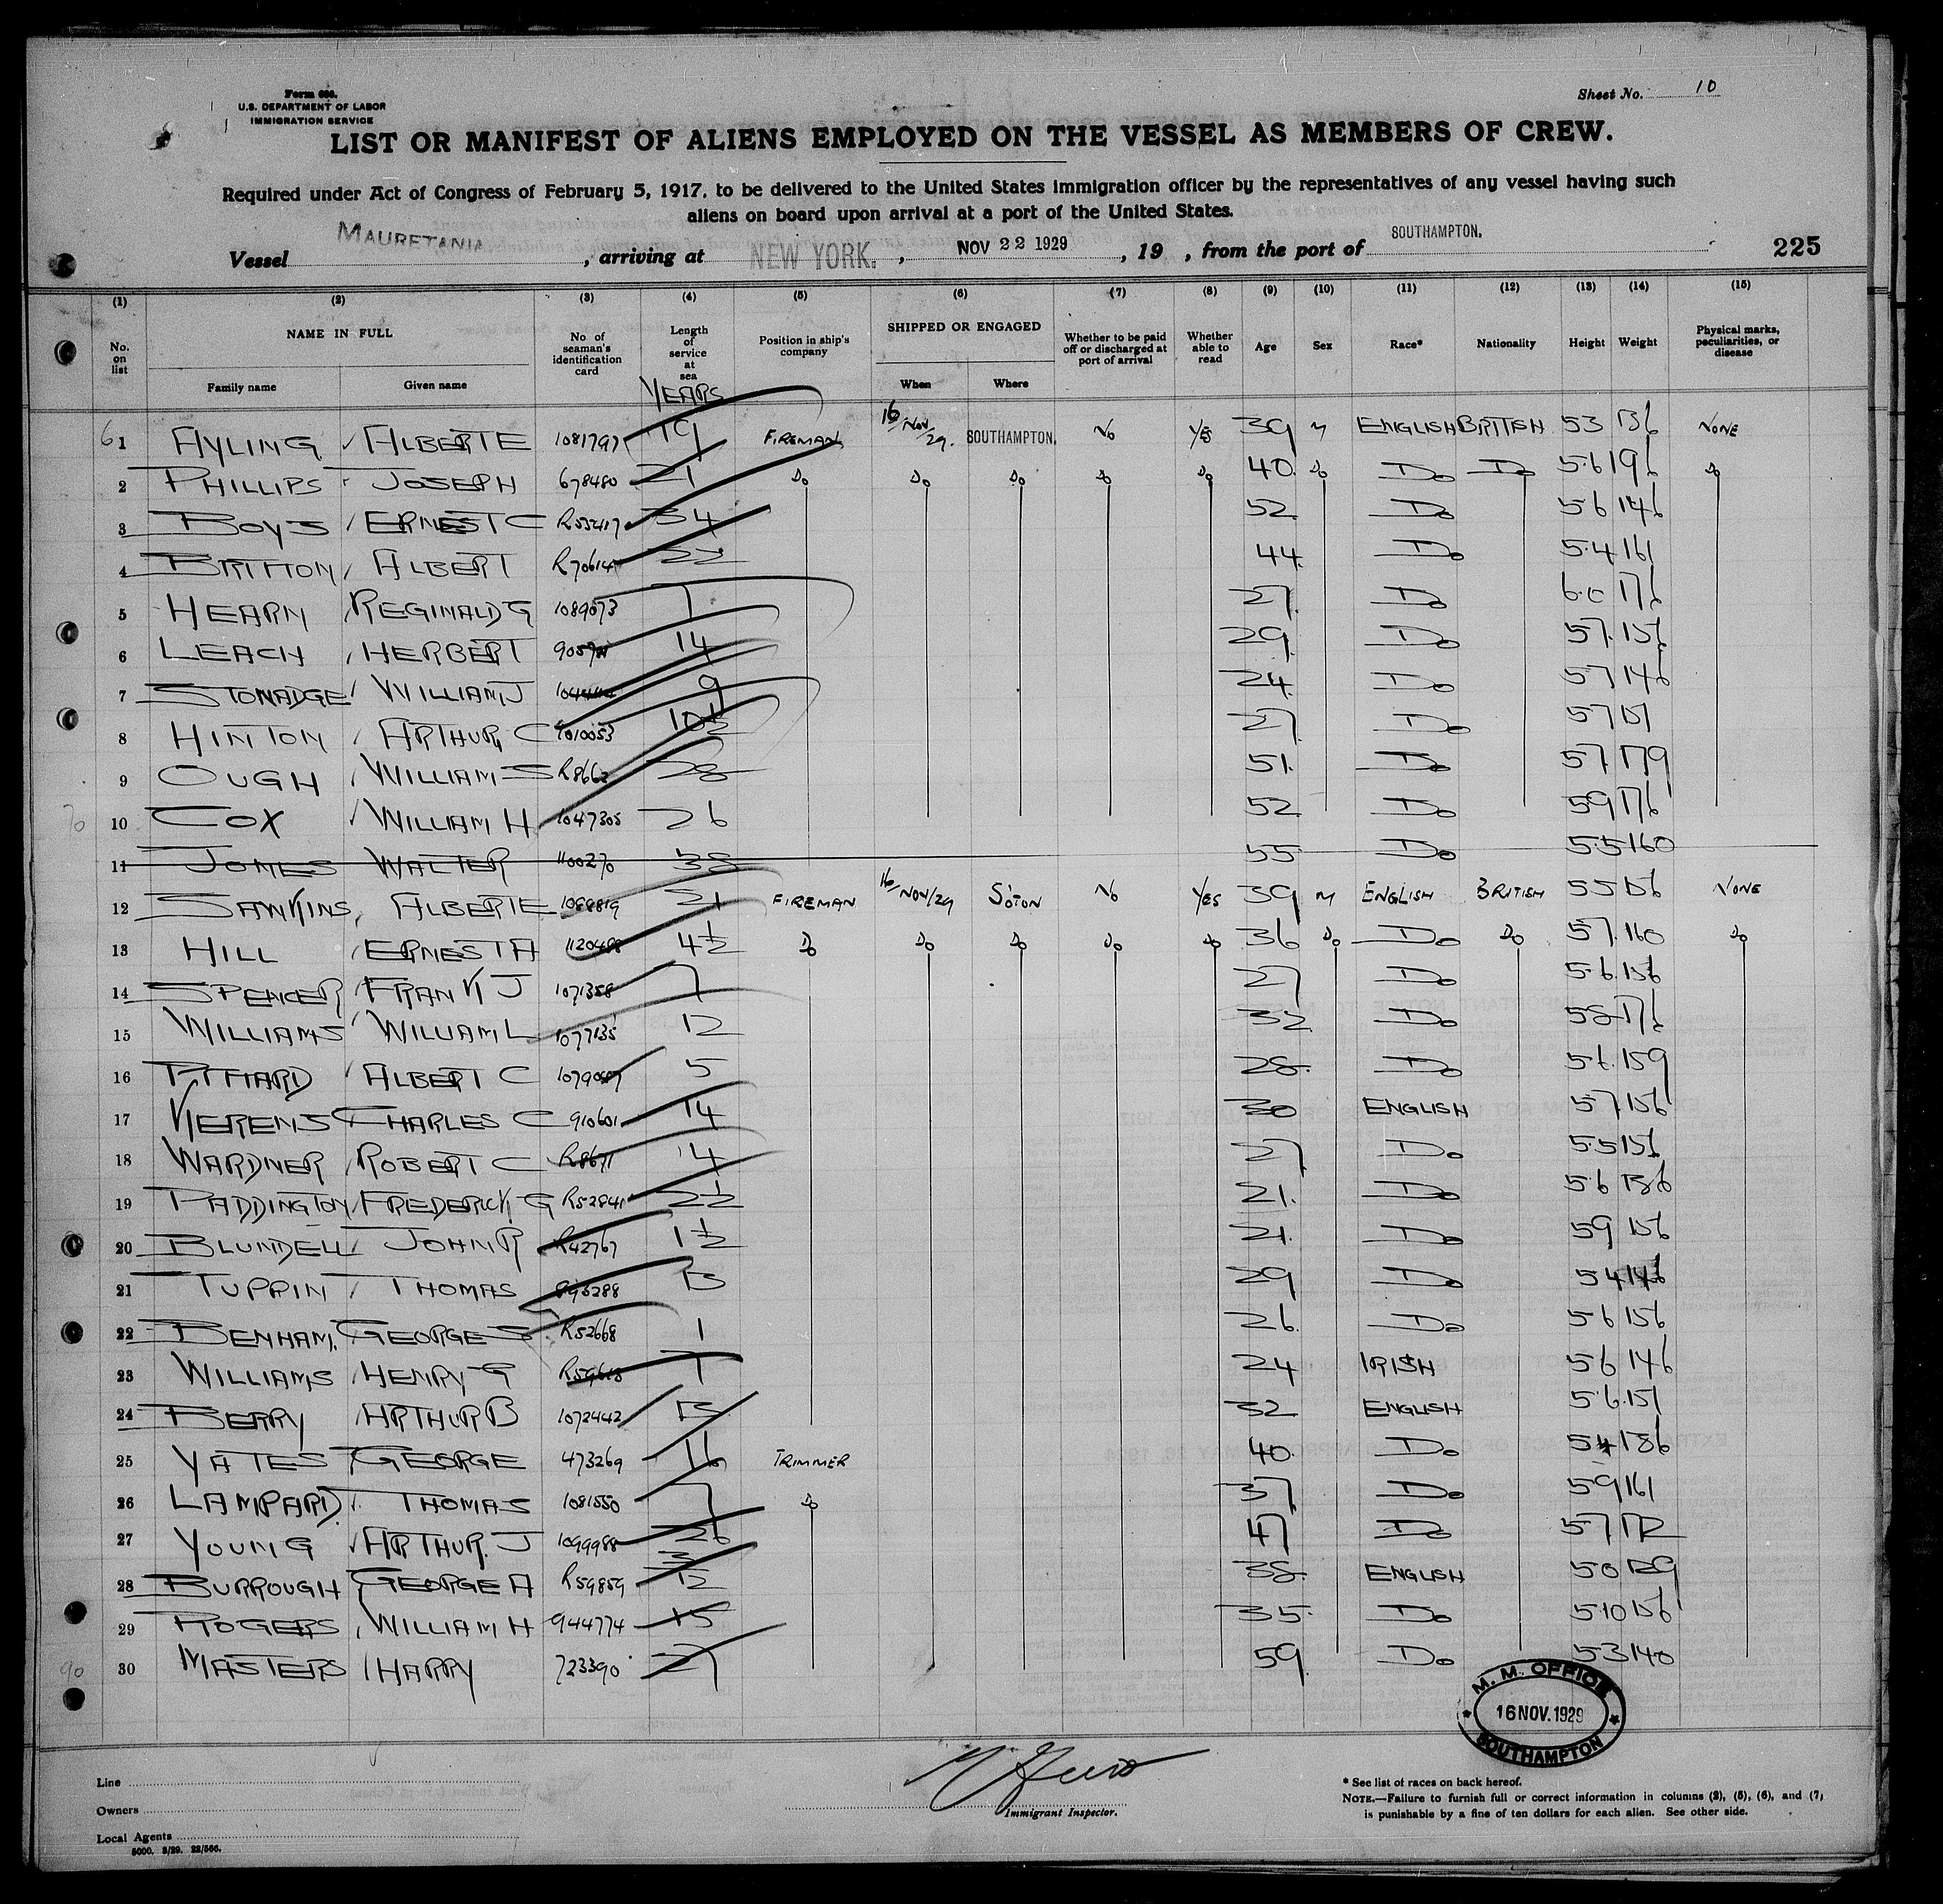 Form 680.
U.S. DEPARTMENT OF LABOR
IMMIGRATION SERVICE
Sheet No. 10
LIST OR MANIFEST OF ALIENS EMPLOYED ON THE VESSEL AS MEMBERS OF CREW.
Required under Act of Congress of February 5, 1917, to be delivered to the United States immigration officer by the representatives of any vessel having such
aliens on board upon arrival at a port of the United States.
Vessel MAURETANIA, arriving at NEW YORK., NOV 22 1929, 19 , from the port of SOUTHAMPTON. 225
(1) (2) (3) (4) (5) (6) (7) (8) (9) (10) (11) (12) (13) (14) (15)
No. on list NAME IN FULL Family name Given name No. of seaman's identification card Length of service at sea YEARS Position in ship's company SHIPPED OR ENGAGED When Where Whether to be paid off or discharged at port of arrival Whether able to read Age Sex Race* Nationality Height Weight Physical marks, peculiarities, or disease
61 AYLING ALBERT E 1081797 19 FIREMAN 16/NOV/29. SOUTHAMPTON. NO YES 39 M ENGLISH BRITISH 53 136 NONE
2 PHILLIPS JOSEPH 678480 21 Do Do Do Do Do 40 Do Do Do 5.6 196 Do
3 BOYS ERNEST C R53417 34 52 Do 56 146
4 BRITTON ALBERT R70614 22 44 Do 5.4 161
5 HEARN REGINALD G 1089073 7 27 Do 6.0 176
6 LEACH HERBERT 14 29 Do 57 156
7 STONADGE WILLIAM J 9 24 Do 57 146
8 HINTON ARTHUR C 1010053 10½ 27 Do 57 151
9 OUGH WILLIAM S R8662 28 51 Do 57 179
70 10 COX WILLIAM H 1047305 26 52 Do 59 176
11 JONES WALTER 1100270 38 55 Do 5.5 160
12 SAWKINS ALBERT E 1088819 21 FIREMAN 16/NOV/29 S'OTON NO YES 39 M ENGLISH BRITISH 55 156 NONE
13 HILL ERNEST A 1120488 4½ Do Do Do Do Do 36 Do Do Do 57 160 Do
14 SPENCER FRANK J 1071358 7 27 Do 5.6 156
15 WILLIAMS WILLIAM L 1077135 12 32 Do 58 176
16 PITTARD ALBERT C 5 28 Do 5.6 159
17 KERENS CHARLES C 910601 14 30 ENGLISH 57 156
18 WARDNER ROBERT C R8671 4 27 Do 5.5 156
19 PADDINGTON FREDERICK G R52841 2½ 21 Do 5.6 136
20 BLUNDELL JOHN R R42767 1½ 21 Do 59 156
21 TUPPIN THOMAS 893288 13 29 Do 54 146
22 BENHAM GEORGE S R52668 1 26 Do 56 156
23 WILLIAMS HENRY G 7 24 IRISH 56 146
24 BERRY ARTHUR B 1072442 13 32 ENGLISH 5.6 151
25 YATES GEORGE 473269 16 TRIMMER 40 Do 54 136
26 LAMPARD THOMAS 1081550 7 Do 37 Do 59 161
27 YOUNG ARTHUR. J 1099988 26 47 Do 57 172
28 BURROUGH GEORGE A R59859 3/12 38 ENGLISH 50 129
29 ROGERS WILLIAM H 944774 15 35 Do 510 156
90 30 MASTERS HARRY 723390 27 59 Do 53 140
M. M. OFFICE
16 NOV. 1929
SOUTHAMPTON
Line
Owners
Local Agents
5000. 3/29. 22/566.
Immigrant Inspector.
* See list of races on back hereof.
NOTE.—Failure to furnish full or correct information in columns (2), (5), (6), and (7)
is punishable by a fine of ten dollars for each alien. See other side.